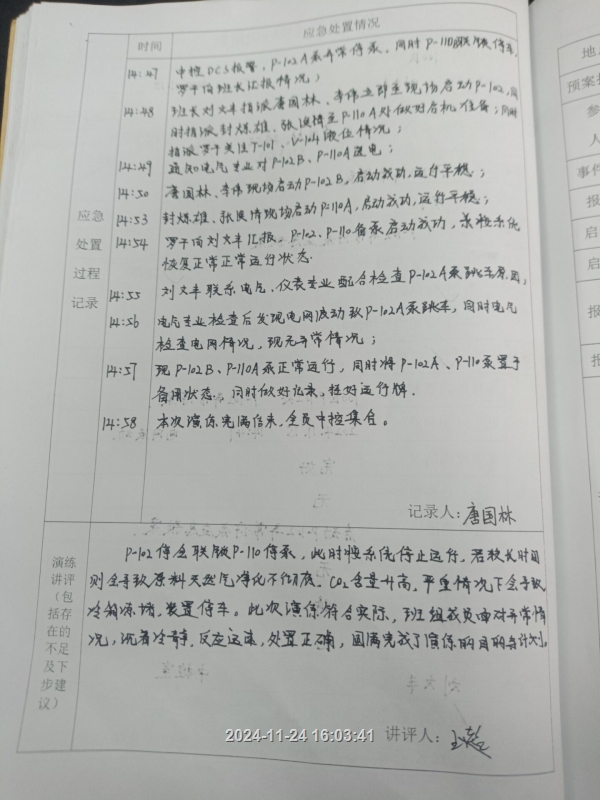 应急处置情况
时间
14:47 中控DCS报警，P-102A泵异常停泵，同时P-110联锁停车，
罗于向班长汇报情况；
14:48 班长刘文丰指派唐国林、李伟立即至现场启动P-102，同
时指派封炼雄、张 至P-110A处做好启机准备；同时
指派罗于关注T-101、V-104液位情况；
14:49 通知电气专业对P-102B、P-110A送电；
14:50 唐国林、李伟现场启动P-102B，启动成功，运行平稳；
14:53 封炼雄、张 现场启动P-110A，启动成功，运行平稳；
应急
处置
过程
记录
14:54 罗于向刘文丰汇报，P-102、P-110备泵启动成功，系统
恢复正常正常运行状态.
14:55 刘文丰联系电气、仪表专业配合检查P-102A泵跳车原因，
14:56 电气专业检查后发现电网波动致P-102A泵跳车，同时电气
检查电网情况，现无异常情况；
14:57 现P-102B、P-110A泵正常运行，同时将P-102A、P-110泵置于
备用状态.同时做好记录，挂好运行牌.
14:58 本次演练完满结束，全员中控集合。
记录人：唐国林
演练
讲评
（包
括存
在的
不足
及下
步建
议）
P-102停会联锁P-110停泵，此时 系统停止运行，若较长时间
则会导致原料天然气净化不彻底，CO₂含量升高，严重情况下会导致
冷箱冻堵，装置停车。此次演练符合实际，班组成员面对异常情
况，沉着冷静，反应迅速，处置正确，圆满完成了演练的目的与计划。
讲评人：
2024-11-24 16:03:41
地
预案
参
人
事件
报
启
启
报
报